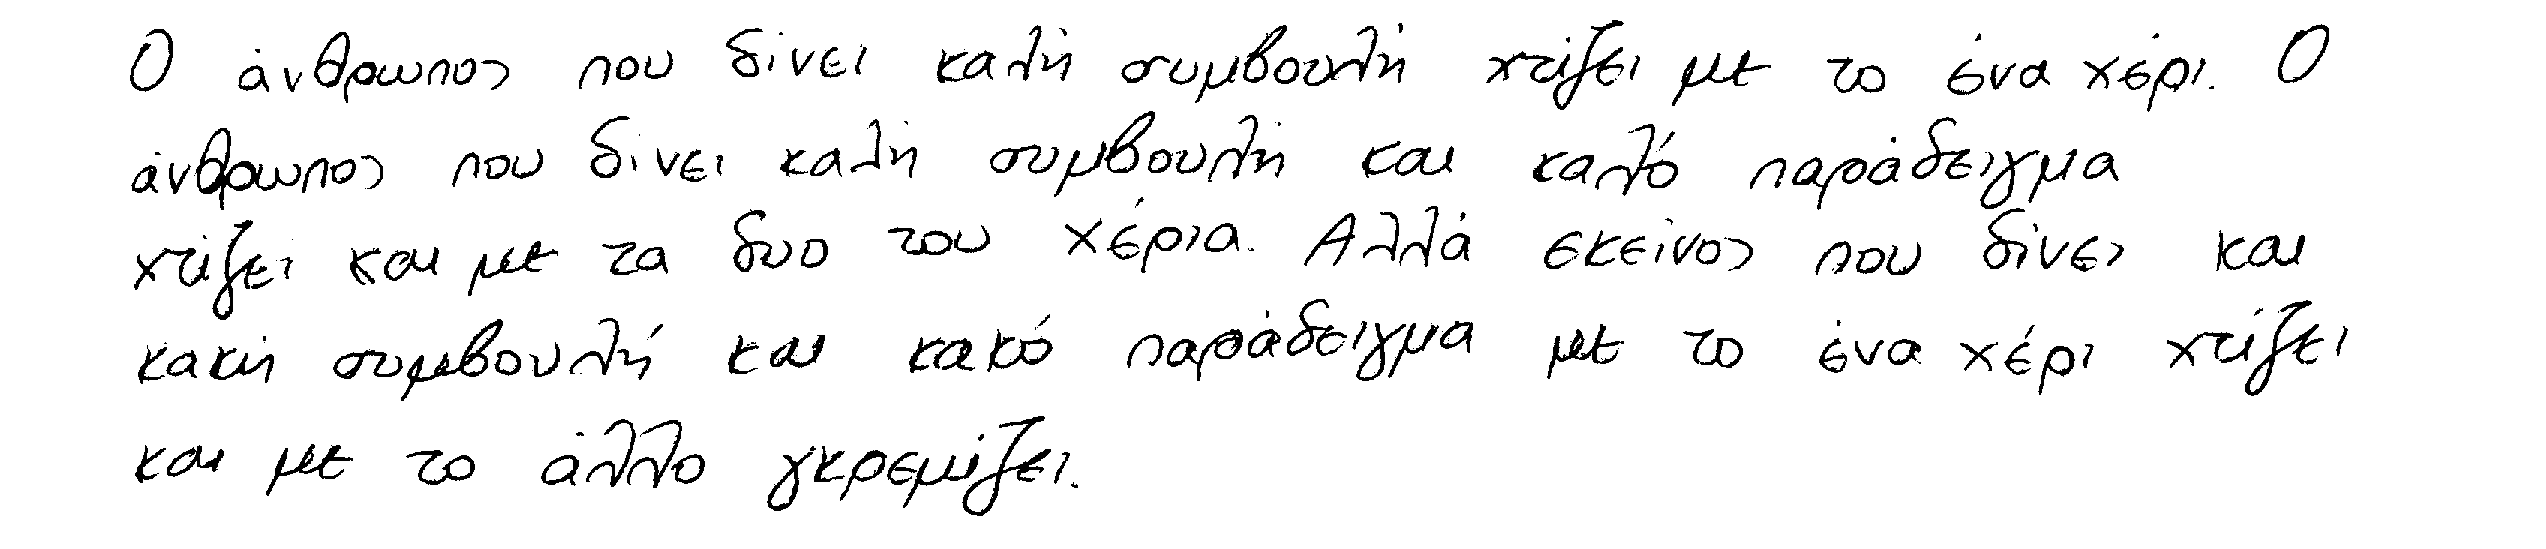 Ο άνθρωπος που δίνει καλή συμβουλή χτίζει με το ένα χέρι. Ο
άνθρωπος που δίνει καλή συμβουλή και καλό παράδειγμα
χτίζει και με τα δυο του χέρια. Αλλά εκείνος που δίνει και
κακή συμβουλή και κακό παράδειγμα με το ένα χέρι χτίζει
και με το άλλο γκρεμίζει.